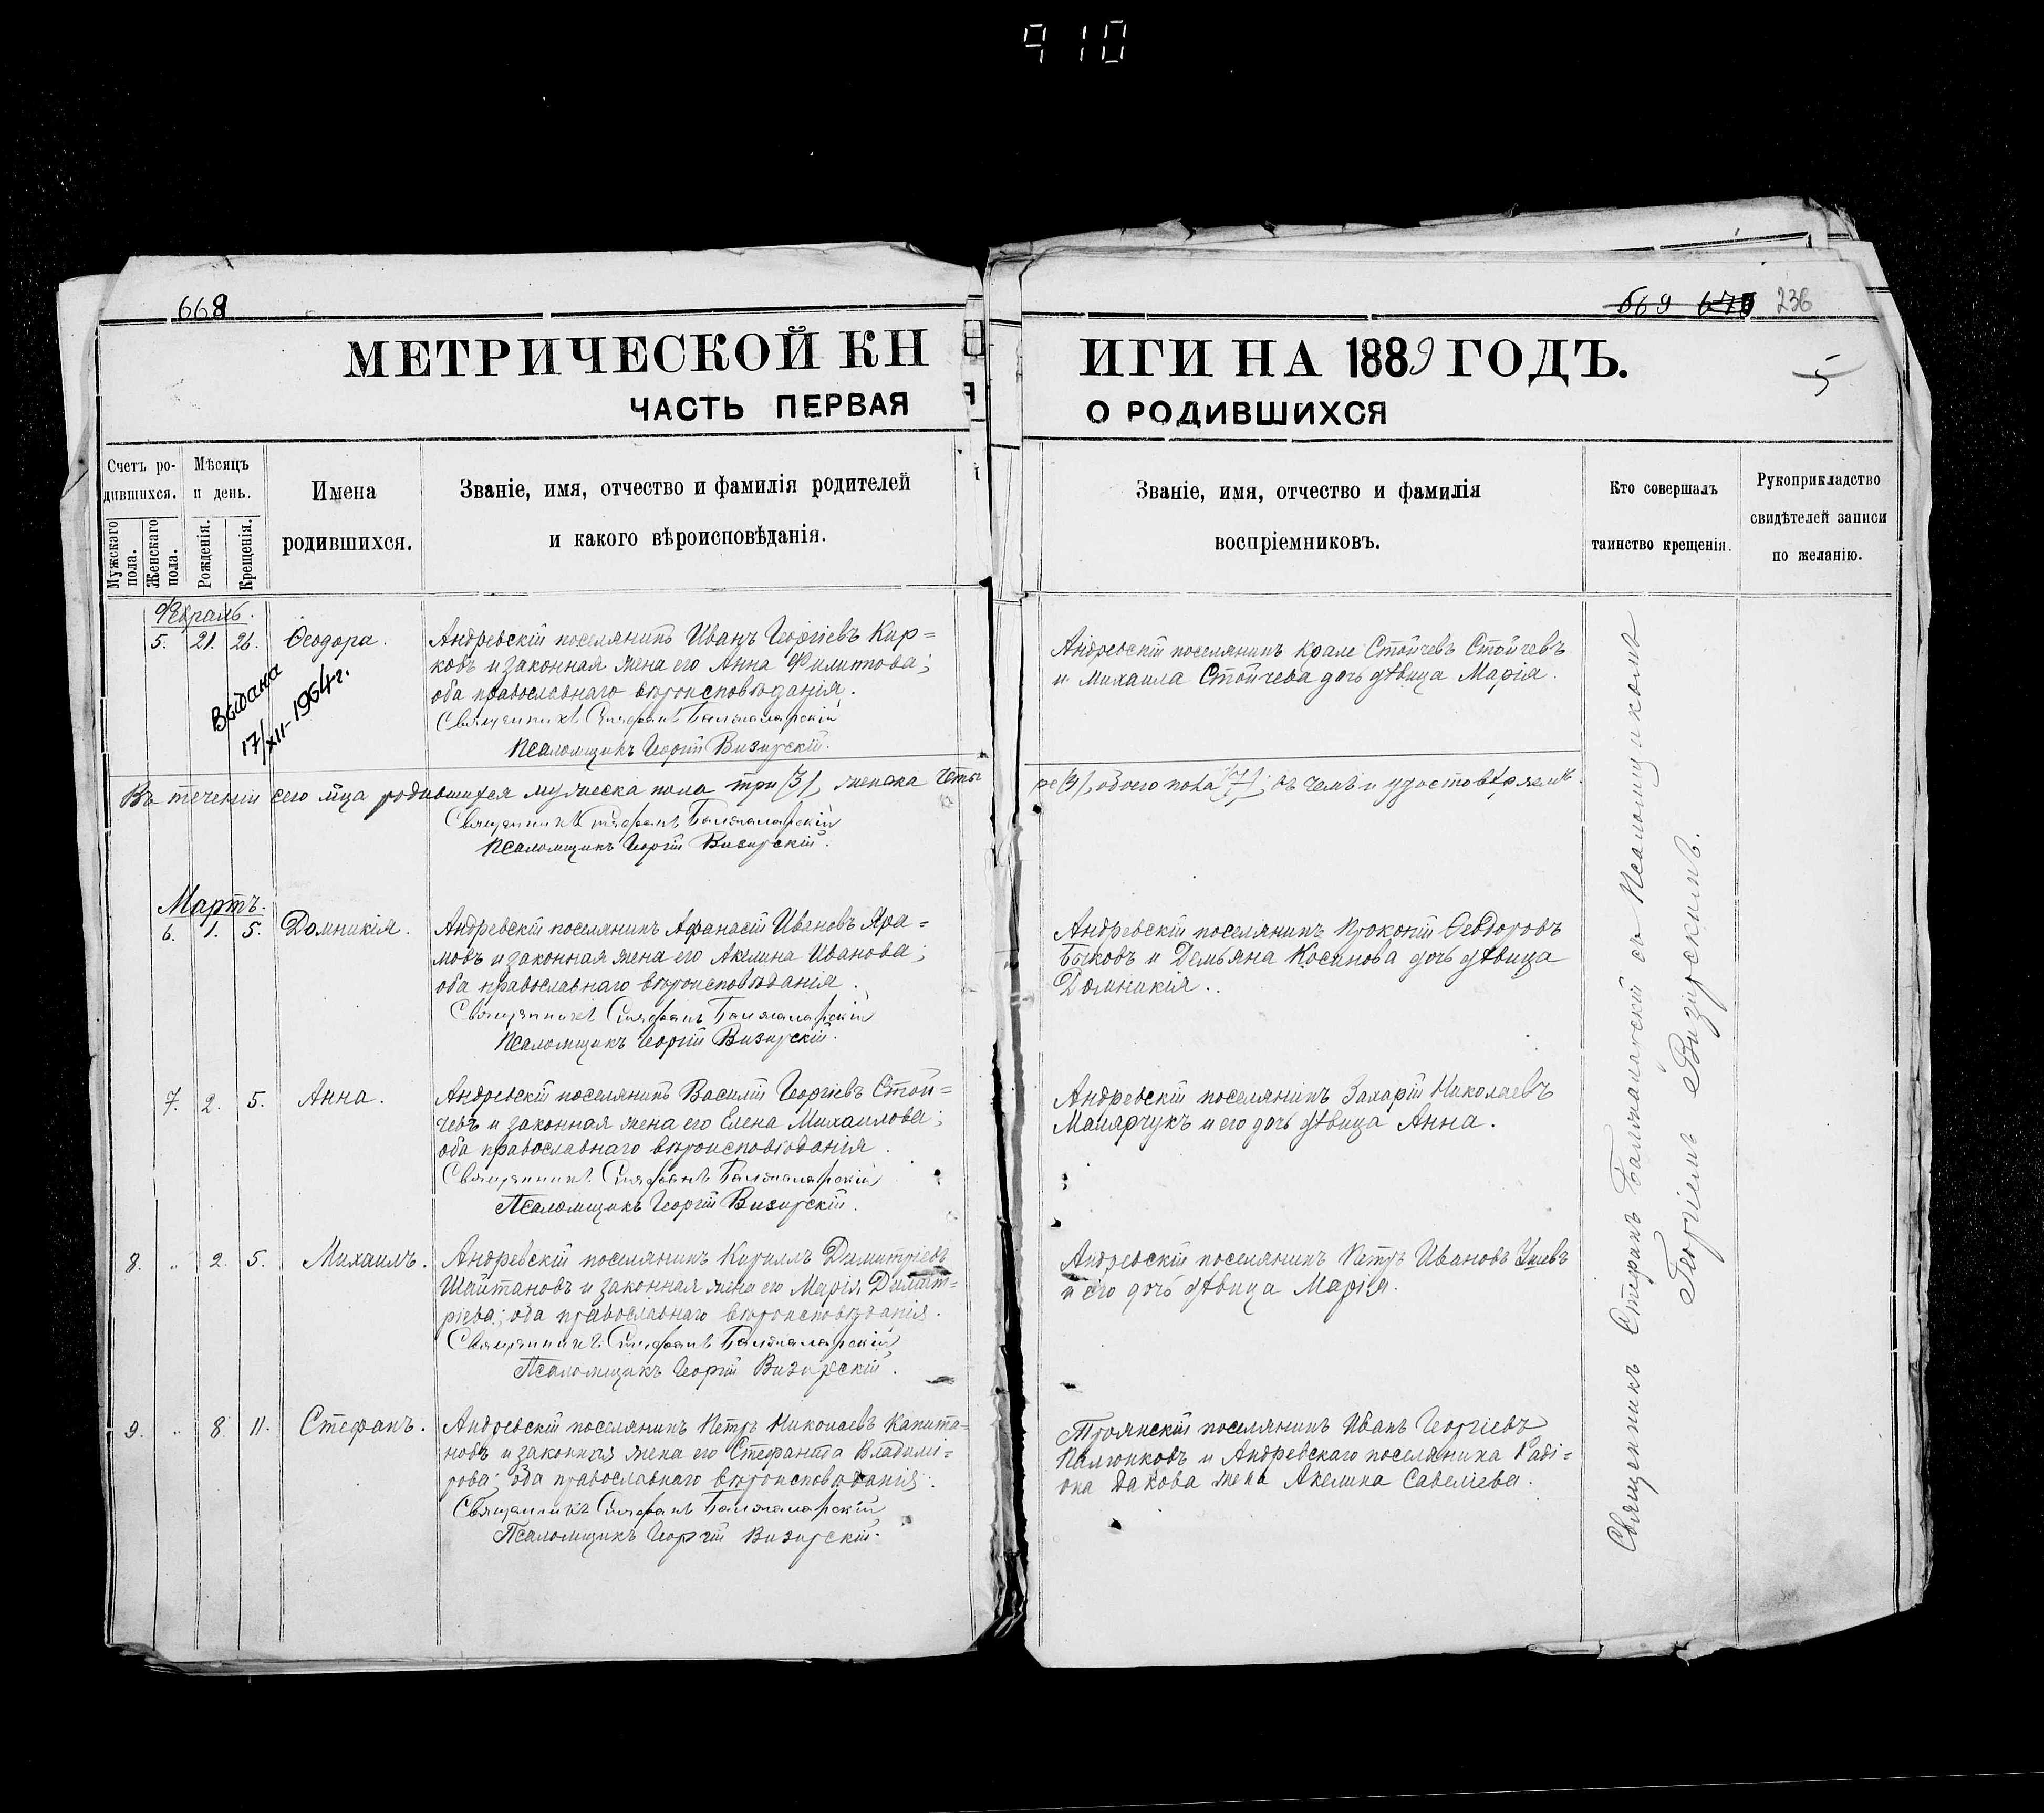 910
668
669 670 236
5
МЕТРИЧЕСКОЙ КН
ИГИ НА 1889 ГОДЪ.
ЧАСТЬ ПЕРВАЯ
О РОДИВШИХСЯ
Счетъ ро-
дившихся.
Мужскаго пола.
Женскаго пола.
Мѣсяцъ
и день.
Рожденія.
Крещенія.
Имена
родившихся.
Званіе, имя, отчество и фамилія родителей
и какого вѣроисповѣданія.
Званіе, имя, отчество и фамилія
воспріемниковъ.
Кто совершалъ
таинство крещенія.
Рукоприкладство
свидѣтелей записи
по желанію.
Февраль.
5. 21. 26. Ѳеодора.
Выдана
17/XII-1964г.
Андреевскій поселянинъ Иванъ Георгіевъ Кир=
ковъ и законная жена его Анна Филиппова;
оба православнаго вѣроисповѣданія.
Священникъ Стефанъ Балжаларскій
Псаломщикъ Георгій Визирскій.
Андреевскій поселянинъ Крале Стойчевъ Стойчевъ
и Михаила Стойчева дочь дѣвица Марія.
Въ теченіи сего мца родившихся мужеска пола три /3/, женска четы
ре /4/, обоего пола /7/; въ чемъ и удостовѣряемъ.
Священникъ Стефанъ Балжаларскій
Псаломщикъ Георгій Визирскій.
Мартъ.
6. 1. 5. Домникія.
Андреевскій поселянинъ Афанасій Ивановъ Яра=
мовъ и законная жена его Акилина Иванова;
оба православнаго вѣроисповѣданія.
Священникъ Стефанъ Балжаларскій
Псаломщикъ Георгій Визирскій.
Андреевскій поселянинъ Прокопій Ѳеодоровъ
Быковъ и Демьяна Косинова дочь дѣвица
Домникія.
7. 2. 5. Анна.
Андреевскій поселянинъ Василій Георгіевъ Стой=
чевъ и законная жена его Елена Михаилова;
оба православнаго вѣроисповѣданія.
Священникъ Стефанъ Балжаларскій
Псаломщикъ Георгій Визирскій.
Андреевскій поселянинъ Захарій Николаевъ
Малярчукъ и его дочь дѣвица Анна.
8. „ 2. 5. Михаилъ.
Андреевскій поселянинъ Кириллъ Димитріевъ
Шайтановъ и законная жена его Марія Димит=
ріева; оба православнаго вѣроисповѣданія.
Священникъ Стефанъ Балжаларскій
Псаломщикъ Георгій Визирскій.
Андреевскій поселянинъ Петръ Ивановъ
и его дочь дѣвица Марія.
9. „ 8. 11. Стефанъ.
Андреевскій поселянинъ Петръ Николаевъ Капита=
новъ и законная жена его Стефанида Владимі=
рова; оба православнаго вѣроисповѣданія.
Священникъ Стефанъ Балжаларскій
Псаломщикъ Георгій Визирскій.
Троянскій поселянинъ Иванъ Георгіевъ
Палюнковъ и Андреевскаго поселянина Раді=
она Дакова жена Акилина Савеліева.
Священникъ Стефанъ Балжаларскій съ Псаломщикомъ
Георгіемъ Визирскимъ.